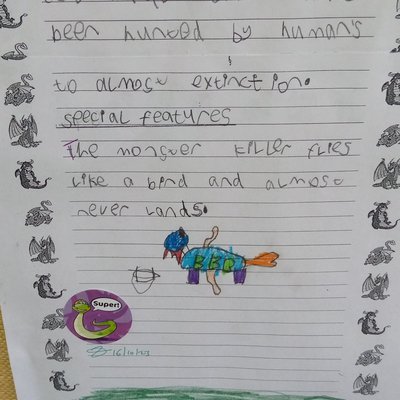 been hunted by human's
to almost extinction.
special features
The monster killer flies
like a bird and almost
never lands.
Super!